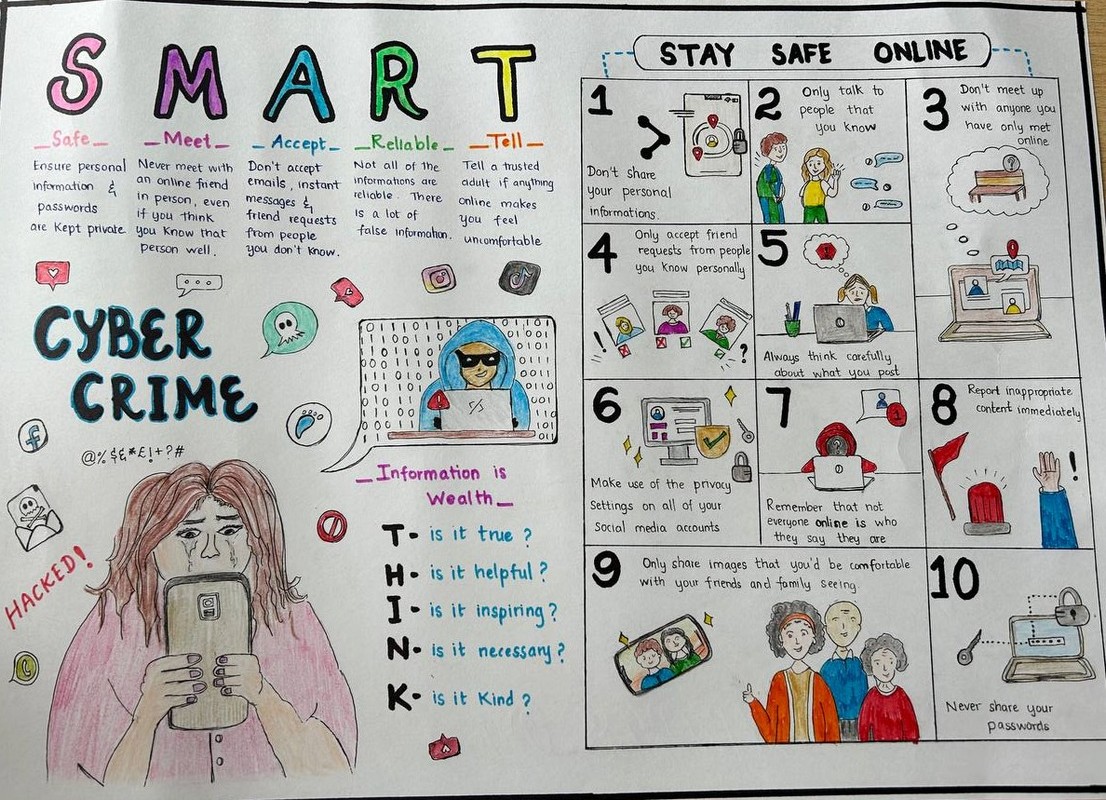 S M A R T
_Safe_
Ensure personal
information &
passwords
are Kept private.
_Meet_
Never meet with
an online friend
in person, even
if you think
you Know that
Person well.
_Accept_
Don't accept
emails, instant
messages &
friend requests
from people
you don't know.
_Reliable_
Not all of the
informations are
reliable. There
is a lot of
false information.
_Tell_
Tell a trusted
adult if anything
online makes
you feel
uncomfortable
CYBER
CRIME
@%$&*£!+?#
HACKED!
_Information is
Wealth_
T- is it true?
H- is it helpful?
I- is it inspiring?
N- is it necessary?
K- is it Kind?
STAY SAFE ONLINE
1
Don't share
your personal
informations.
2
Only talk to
people that
you know
3
Don't meet up
with anyone you
have only met
online
4
Only accept friend
requests from people
you know personally
5
Always think carefully
about what you post
6
Make use of the privacy
Settings on all of your
Social media accounts
7
Remember that not
everyone online is who
they say they are
8
Report inappropriate
content immediately
9
Only share images that you'd be comfortable
with your friends and family seeing.
10
Never share your
passwords